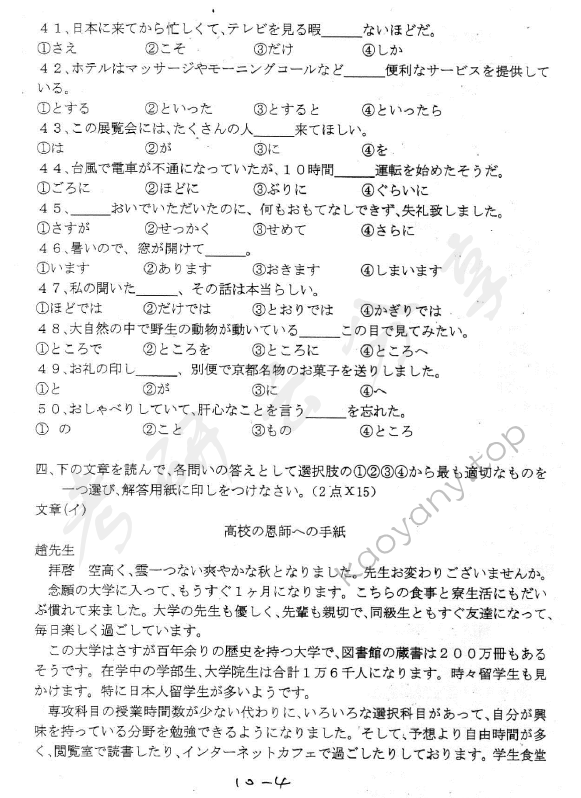 ４１、日本に来てから忙しくて、テレビを見る暇______ないほどだ。
①さえ ②こそ ③だけ ④しか
４２、ホテルはマッサージやモーニングコールなど______便利なサービスを提供して
いる。
①とする ②といった ③とすると ④といったら
４３、この展覧会には、たくさんの人______来てほしい。
①は ②が ③に ④を
４４、台風で電車が不通になっていたが、１０時間______運転を始めたそうだ。
①ごろに ②ほどに ③ぶりに ④ぐらいに
４５、______おいでいただいたのに、何もおもてなしできず、失礼致しました。
①さすが ②せっかく ③せめて ④さらに
４６、暑いので、窓が開けて______。
①います ②あります ③おきます ④しまいます
４７、私の聞いた______、その話は本当らしい。
①ほどでは ②だけでは ③とおりでは ④かぎりでは
４８、大自然の中で野生の動物が動いている______この目で見てみたい。
①ところで ②ところを ③ところに ④ところへ
４９、お礼の印し______、別便で京都名物のお菓子を送りしました。
①と ②が ③に ④へ
５０、おしゃべりしていて、肝心なことを言う______を忘れた。
① の ②こと ③もの ④ところ
四、下の文章を読んで、各問いの答えとして選択肢の①②③④から最も適切なものを
一つ選び、解答用紙に印しをつけなさい。（２点Ｘ15）
文章（イ）
高校の恩師への手紙
趙先生
拝啓　空高く、雲一つない爽やかな秋となりました。先生お変わりございませんか。
念願の大学に入って、もうすぐ１ヶ月になります。こちらの食事と寮生活にもだい
ぶ慣れて来ました。大学の先生も優しく、先輩も親切で、同級生ともすぐ友達になって、
毎日楽しく過ごしています。
この大学はさすが百年余りの歴史を持つ大学で、図書館の蔵書は２００万冊もある
そうです。在学中の学部生、大学院生は合計１万６千人になります。時々留学生も見
かけます。特に日本人留学生が多いようです。
専攻科目の授業時間数が少ない代わりに、いろいろな選択科目があって、自分が興
味を持っている分野を勉強できるようになりました。そして、予想より自由時間が多
く、閲覧室で読書したり、インターネットカフェで過ごしたりしております。学生食堂
10-4
考研云分享
kaoyany.top